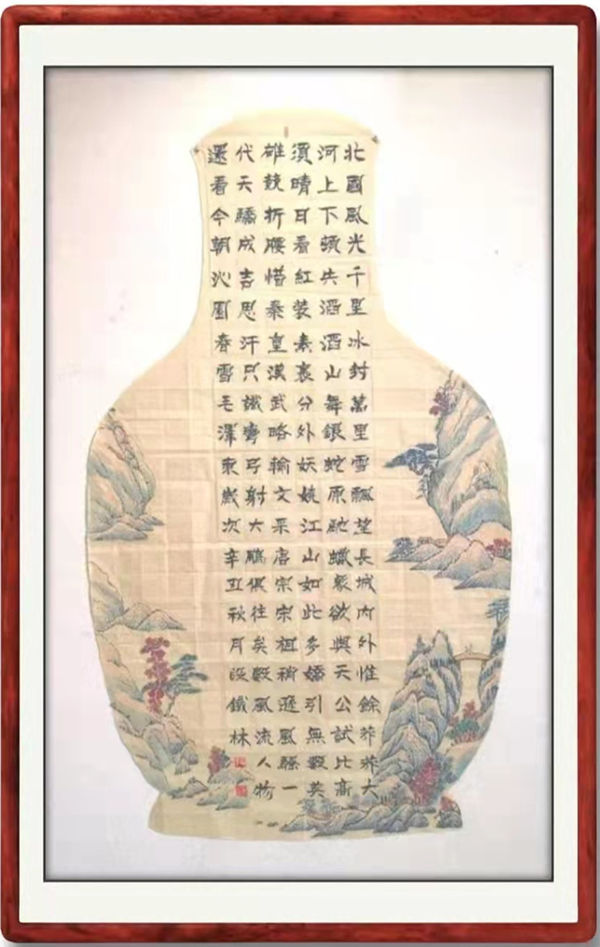 北國風光千里冰封萬里雪飄望長城内外惟餘莽莽大
河上下頓失滔滔山舞銀蛇原馳蠟象欲與天公試比高
須晴日看紅裝素裹分外妖嬈江山如此多嬌引無數英
雄競折腰惜秦皇漢武略輸文采唐宗宋祖稍遜風騷一
代天驕成吉思汗只識彎弓射大鵰俱往矣數風流人物
還看今朝沁園春雪毛澤東歲次辛丑秋月段鐵林